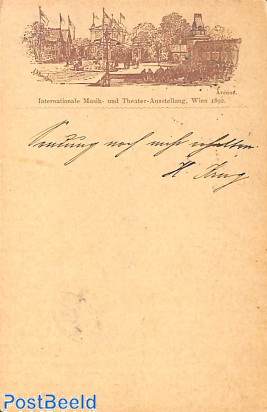 Internationale Musik- und Theater-Ausstellung, Wien 1892.
Sendung noch nicht erhalten.
H. Krug
PostBeeld